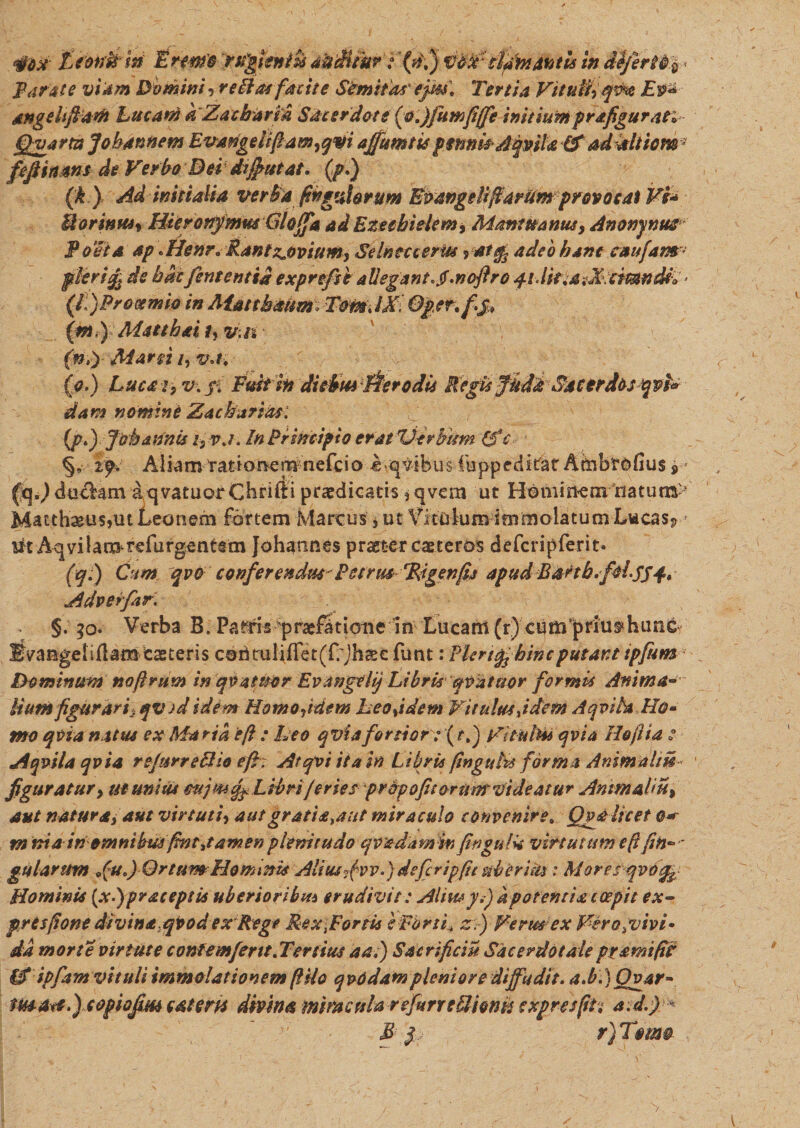 vox Leonis in Eremo rugientis auditur: (n.) vox clamantis in deserto,
Parate viam Domini, rectas facite Semitas ejus. Tertia Vituli, qvæ Ev-
angelistam Lucam à Zacharia Sacerdote (o.) sumsisse initium præfigurat.
Qvarta Johannem Evangelistam, qvi assumtis pennis Aqvilæ & ad altiora
festinans de Verbo Dei disputat. (p.)
(k.) Ad initialia verba singulorum Evangelistarum provocat Vi-
ctorinus, Hieronymus Glossa ad Ezechielem, Mantuanus, Anonymus
Poëta ap. Henr. Rantzovium, Selneccerus, atq; adeo hanc causam
pleriq; de hac sententiâ expresse allegant. §. nostro 41. lit. a. X. citandi.
(l.) Proœmio in Matthæum. Tom. IX. Oper. f. 5.
(m.) Matthæi 1, v. 1.
(n.) Marci 1, v. 1.
(o.) Lucæ 1, v. 5. Fuit in diebus Herodis Regis Judæ Sacerdos qvi-
dam nomine Zacharias.
(p.) Johannis 1, v. 1. In Principio erat Verbum &c
§. 29. Aliam rationem nescio è qvibus suppeditat Ambrosius,
(q.) ductam à qvatuor Christi prædicatis, qvem ut Hominem natum
Matthæus, ut Leonem fortem Marcus, ut Vitulum immolatum Lucas,
ut Aqvilam resurgentem Johannes præter cæteros descripserit.
(q.) Cum qvo conferendus Petrus Rigensis apud Barth. fol. 554.
Adversar.
§. 30. Verba B. Patris præfatione in Lucam (r) cum prius hunc
Evangelistam cæteris contulisset (s.) hæc sunt: Pleriq; hinc putant ipsum
Dominum nostrum in qvatuor Evangelij Libris qvatuor formis Anima-
lium figurari, qvod idem Homo, idem Leo, idem Vitulus, idem Aqvila. Ho-
mo qvia natus ex Maria est: Leo qvia fortior: (t.) Vitulus qvia Hostia:
Aqvila qvia resurrectio est. Atqvi ita in Libris singulis forma Animaliū
figuratur, ut unius cujusq; Libri series propositorum videatur Animaliū,
aut naturæ, aut virtuti, aut gratiæ, aut miraculo convenire. Qvæ licet o-
mnia in omnibus sint, tamen plenitudo qvædam in singulis virtutum est sin-
gularum. (u.) Ortum Hominis Alius, (vv.) descripsit uberius: Mores qvoq;
Hominis (x.) præceptis uberioribus erudivit: Alius y.) à potentiæ cœpit ex-
presfione divinæ, qvod ex Rege Rex, Fortis è Forti, z.) Verus ex Vero, vivi-
dâ morte virtute contemserit. Tertius aa.) Sacrificiū Sacerdotale præmisit
& ipsam vituli immolationem stilo qvodam pleniore diffudit. a.b.) Qvar-
tus aæ.) copiosius cæteris divinæ miracula resurrectionis expresfit. a.d.)
B 3 r) Tomo